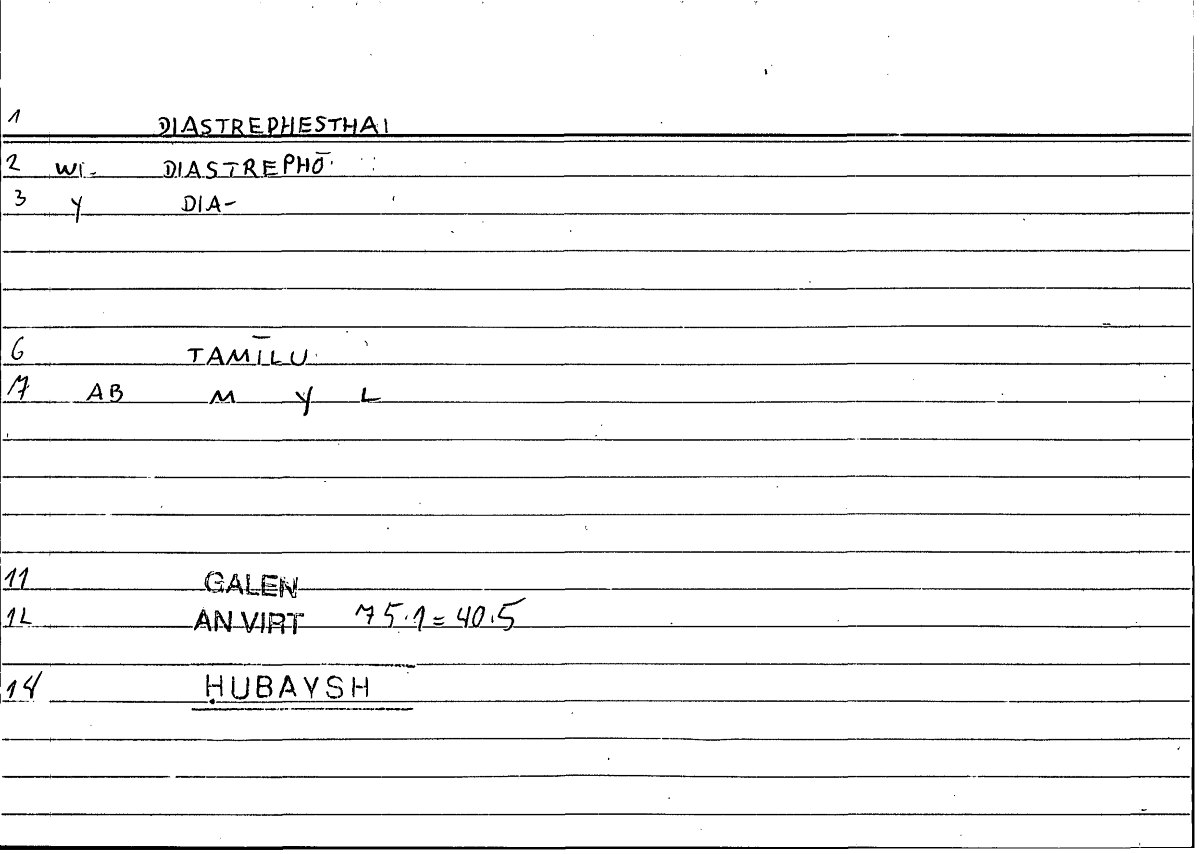 1 DIASTREPHESTHAI
2 WI- DIASTREPHŌ
3 Y DIA-
6 TAMĪLU
7 AB M Y L
11 GALEN
12 AN VIRT 75.1 = 40.5
14 ḤUBAYSH